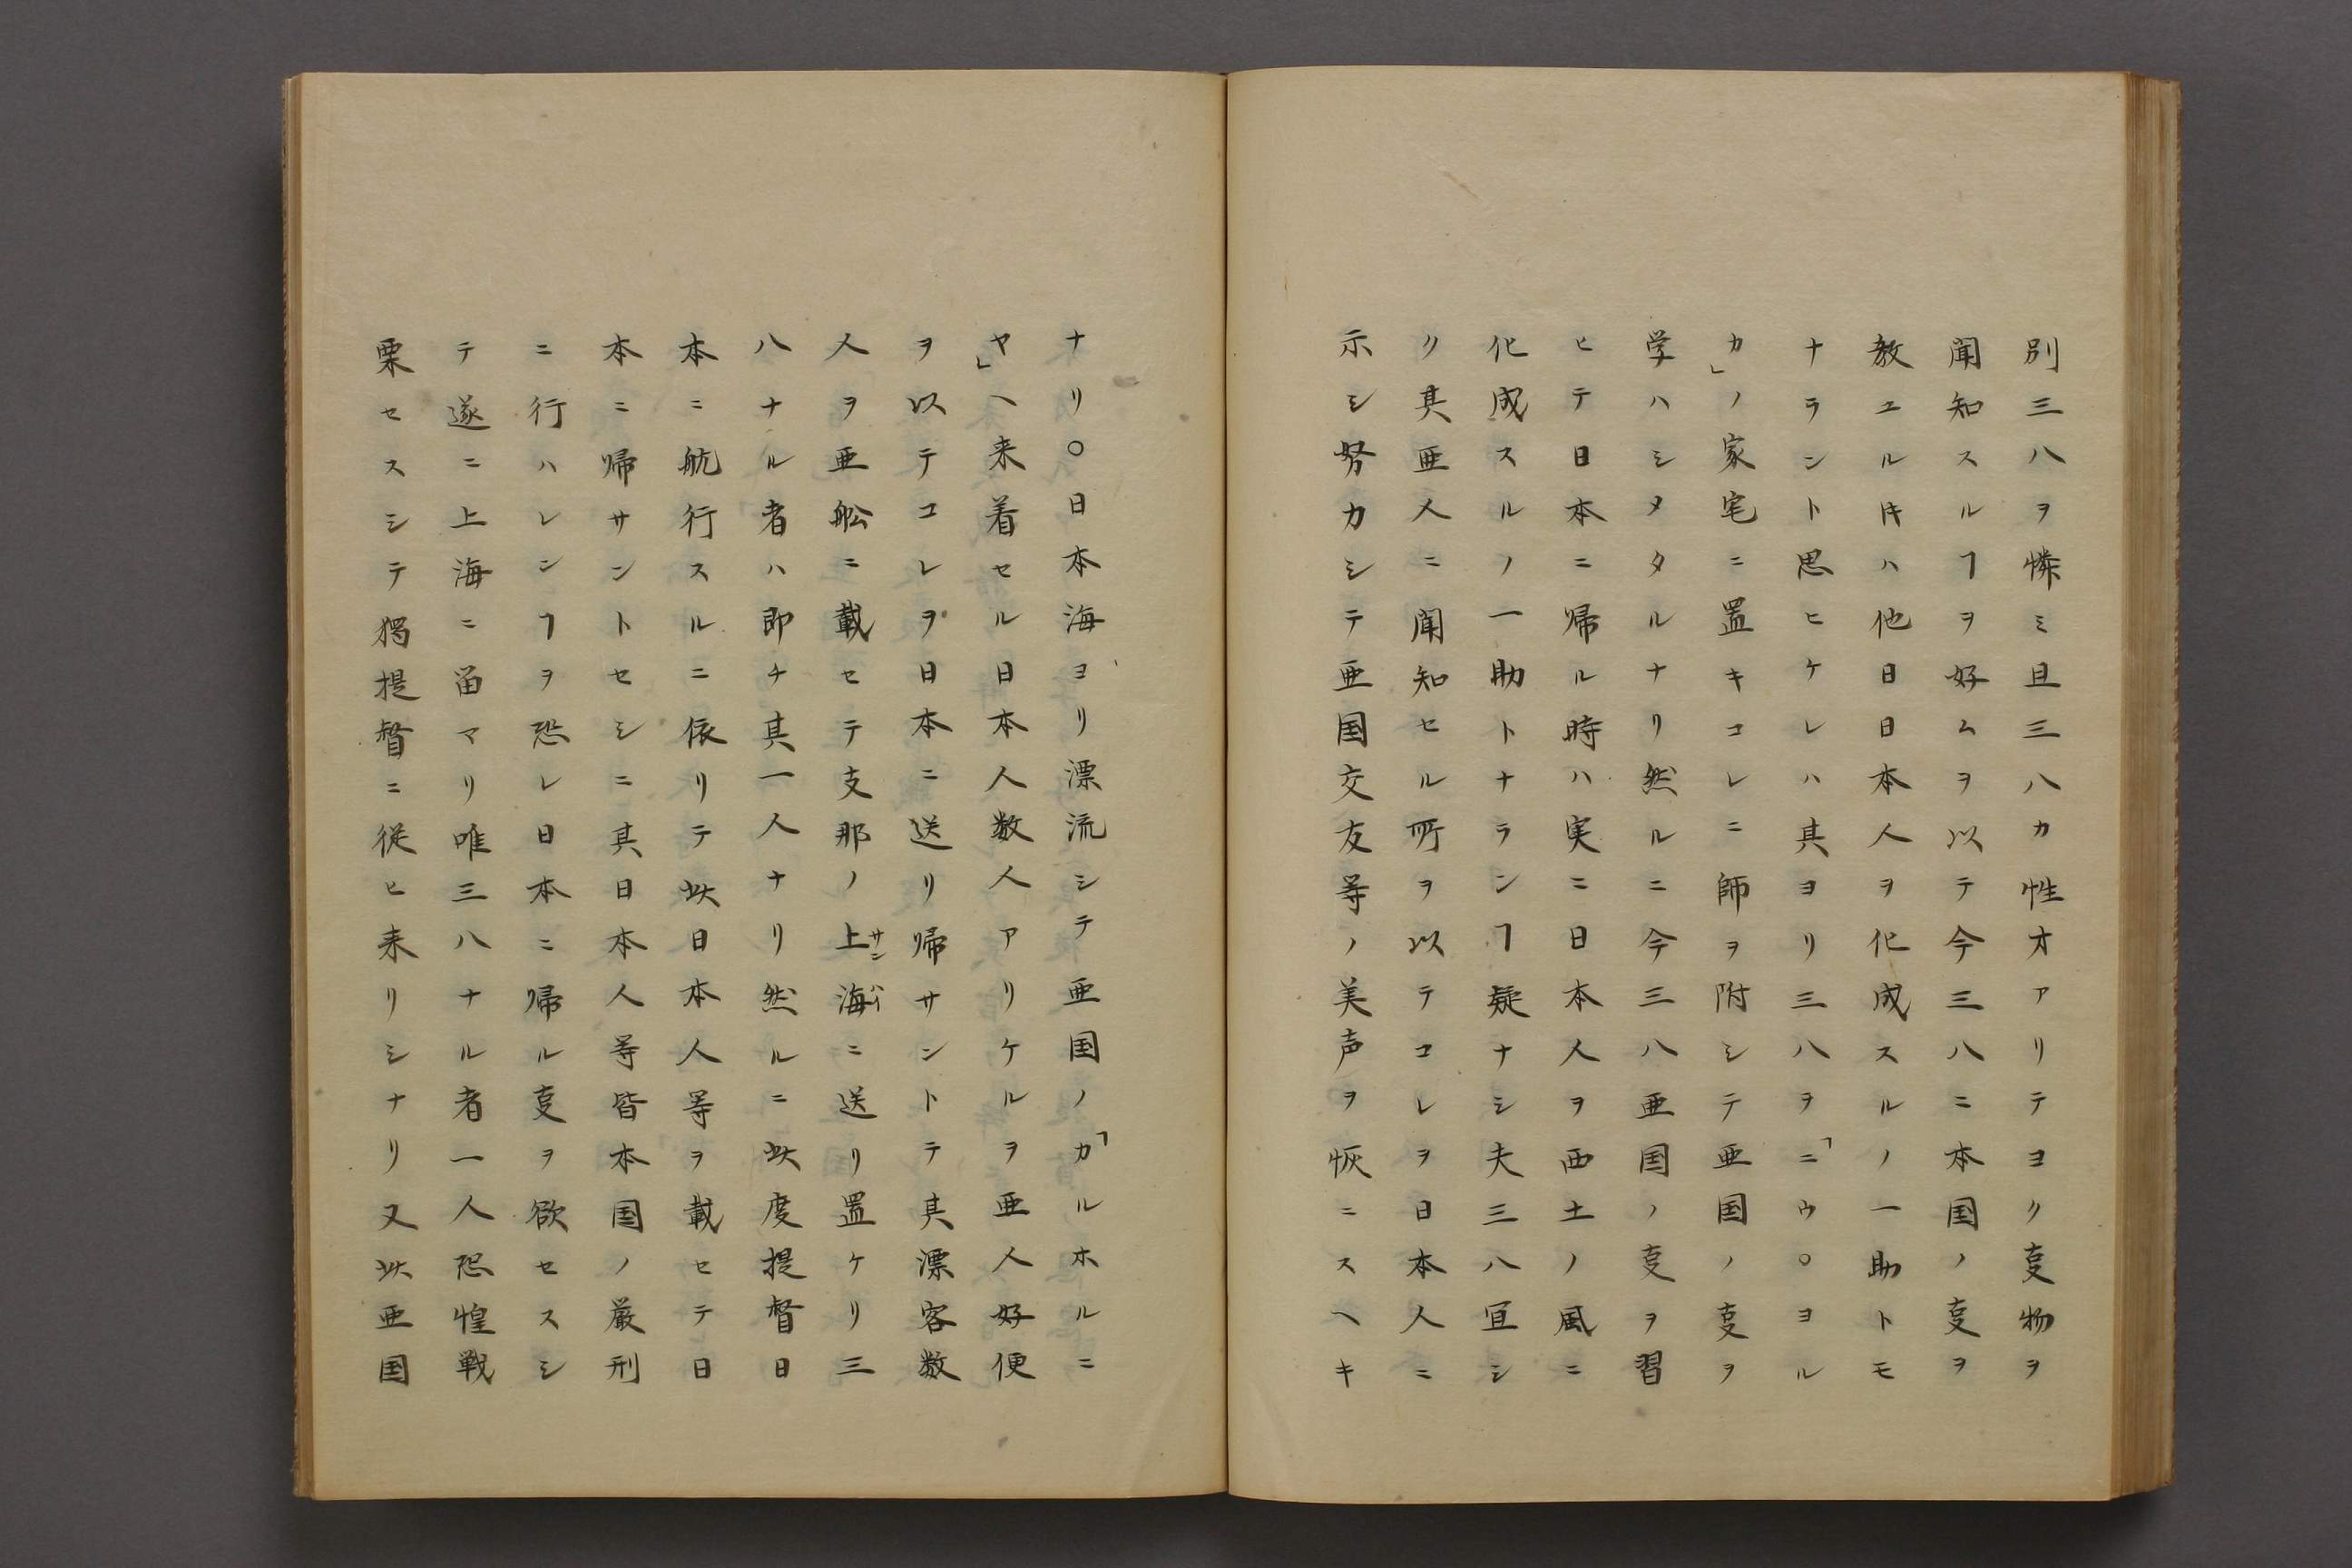 別三八ヲ憐ミ且三八カ性才アリテヨク叓物ヲ
聞知スルヿヲ好ムヲ以テ今三八ニ本国ノ叓ヲ
教ユルキハ他日日本人ヲ化成スルノ一助トモ
ナラント思ヒケレハ其ヨリ三八ヲ「ニウ○ヨル
カ」ノ家宅ニ置キコレニ師ヲ附シテ亜国ノ叓ヲ
学ハシメタルナリ然ルニ今三八亜国ノ叓ヲ習
ヒテ日本ニ帰ル時ハ実ニ日本人ヲ西土ノ風ニ
化成スルノ一助トナランヿ疑ナシ夫三八宜シ
ク其亜人ニ聞知セル所ヲ以テコレヲ日本人ニ
示シ努力シテ亜国交友等ノ美声ヲ恢ニスヘキ
ナリ○日本海ヨリ漂流シテ亜国ノ「カルホルニ
ヤ」ヘ来着セル日本人数人アリケルヲ亜人好便
ヲ以テコレヲ日本ニ送リ帰サントテ其漂客数
人ヲ亜舩ニ載セテ支那ノ上海サンハイニ送リ置ケリ三
八ナル者ハ即チ其一人ナリ然ルニ此度提督日
本ニ航行スルニ依リテ此日本人等ヲ載セテ日
本ニ帰サントセシニ其日本人等皆本国ノ厳刑
ニ行ハレンヿヲ恐レ日本ニ帰ル叓ヲ欲セスシ
テ遂ニ上海ニ畄マリ唯三八ナル者一人恐惶戦
栗セスシテ独提督ニ従ヒ来リシナリ又此亜国